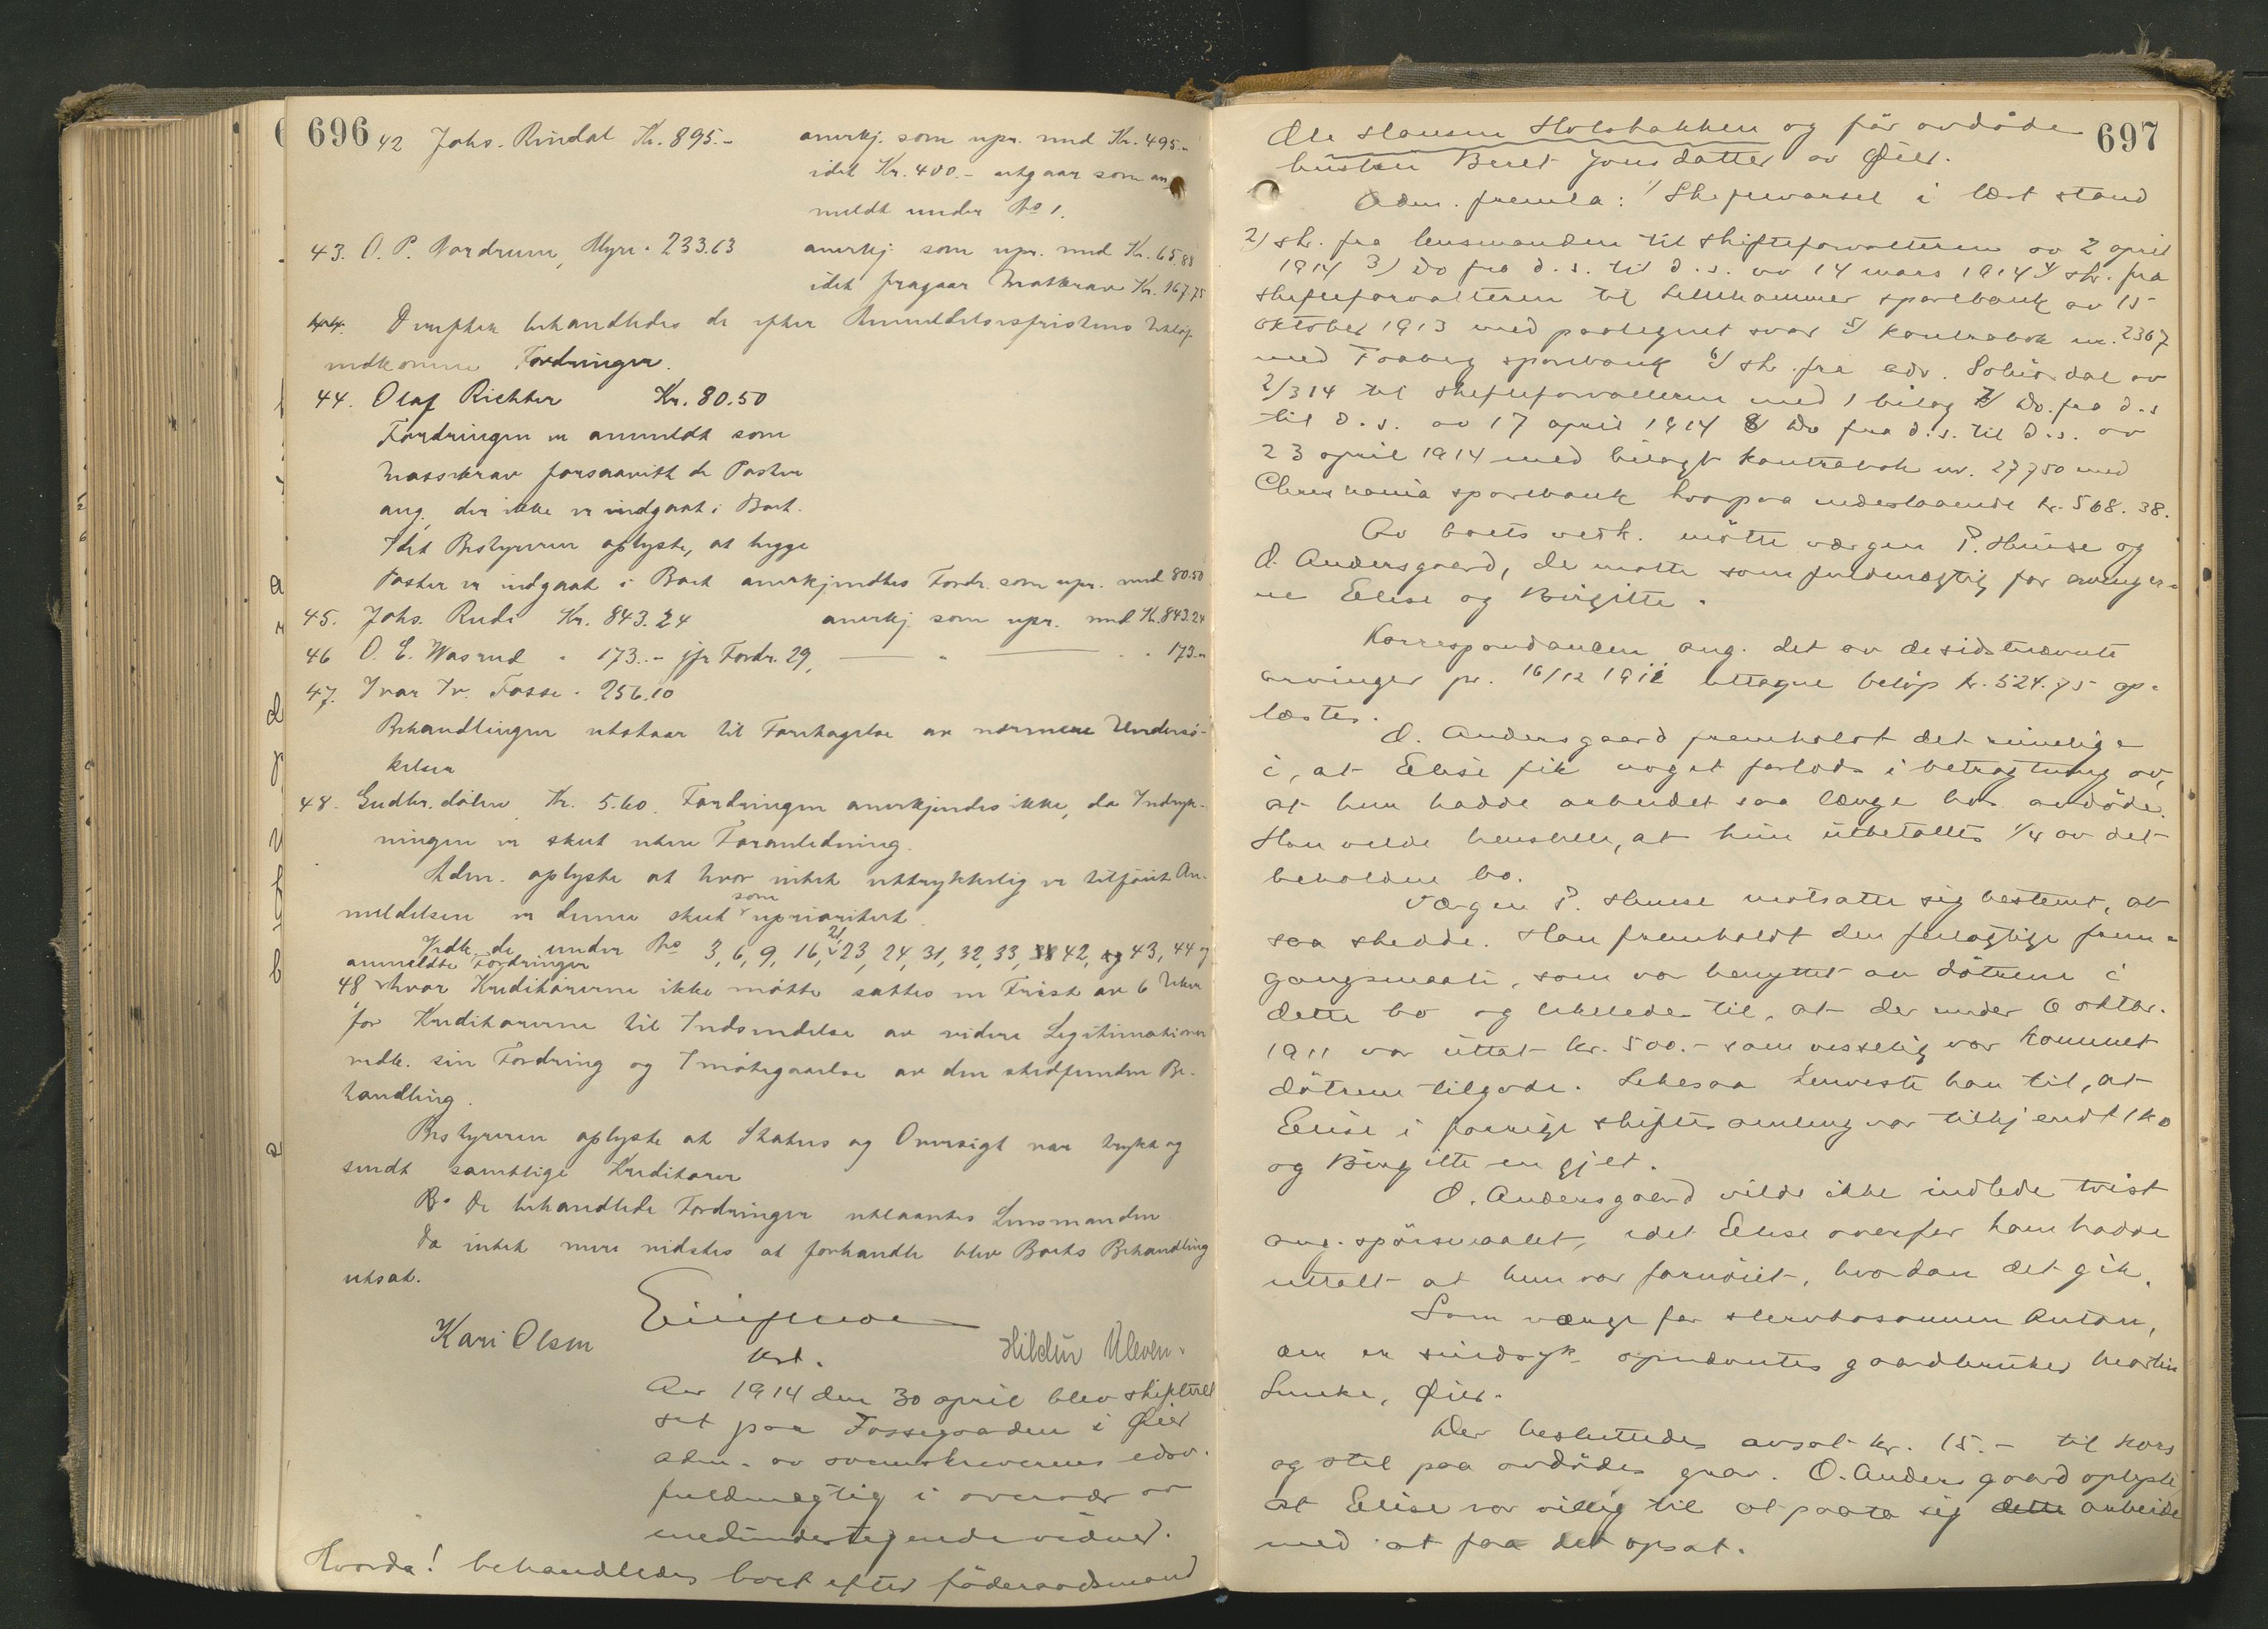 696
42 Johs. Rindal Kr. 895.- anerkj. som upr. med Kr. 495.-
idet Kr. 400.- utgaar som an
meldt under No 1.
43. O. P. Nordrum, Myre. 233.63 anerkj som upr. med Kr. 65.88
idet fragaar Kr. 167.75
Derefter behandledes de efter Anmeldelsesfristens Utløp
indkomne Fordringer.
44. Olaf Richter Kr. 80.50
Fordringen er anmeldt som
Massekrav forsaavidt de Poster
ang. der ikke er indgaat i Boet.
Idet Bestyreren oplyste, at begge
Poster er indgaat i Boet anerkjendtes Fordr. som upr. med 80.50
45. Johs. Rude Kr. 843.24 anerkj som upr. med Kr. 843.24
46 O. E. Wasrud " 173.- jfr Fordr. 29, — " — " 173.-
47. Ivar Iv. Fosse " 256.10
Behandlingen utstaar til Foretagelse av nærmere Undersø-
kelser
48. Gudbr.dølen Kr. 5.60. Fordringen anerkjendes ikke, da Indryk-
ningen er skeet uten Foranledning.
Adm. oplyste at hvor intet uttrykkelig er tilføiet An-
meldelsen er denne skeet som uprioritert
Vedk. de under No 3, 6, 9, 16, 21, 23, 24, 31, 32, 33, 42, 43, 44 og
48 anmeldte Fordringer hvor Kreditorerne ikke møtte sattes en Frist av 6 Uker
for Kreditorerne til Indsendelse av videre Legitimationer
vedk. sin Fordring og Imøtegaaelse av den stedfundne Be-
handling.
Bestyreren oplyste at Status og Oversigt var trykt og
sendt samtlige Kreditorer
De behandlede Fordringer utlaantes Lensmanden
Da intet mere vidstes at forhandle blev Boets Behandling
utsat.
Kari Olsen
kst.
Hildur Uleven.
Aar 1914 den 30 april blev skifteret
sat paa Fossegaarden i Øier
adm. av sorenskriverens edsv.
fuldmægtig i overvær av
medundertegnede vidner.
Hvorda! behandledes boet efter føderaadsmand
697
Ole Hansen Holsbakken og før avdøde
hustru Beret Jonsdatter av Øier.
Adm. fremla: 1/ Skiftevarsel i læst stand
2) skr. fra lensmanden til skifteforvalteren av 2 april
1914 3) Do fra d.s. til d.s. av 14 mars 1914 4/ skr. fra
skifteforvalteren til Lillehammer sparebank av 15
oktober 1913 med paategnet svar 5/ kontrabok nr. 2367
med Faaberg sparebank 6/ skr. fra adv. av
2/3 14 til skifteforvalteren med 1 bilag 7/ Do. fra d.s
til d.s. av 17 april 1914 8/ Do fra d.s. til d.s. av
23 april 1914 med bilagt kontrabok nr. 27750 med
Christiania sparebank hvorpaa indestaaende kr. 568.38.
Av boets vedk. møtte værgen P. Hunse og
O. Andersgaard, de møtte som fuldmægtig for arvinger-
ne Elise og Birgitte.
Korrespondancen ang. det av de sidstnævnte
arvinger pr. 16/12 1911 uttagne beløp kr. 524.75 op-
læstes.
O. Andersgaard fremholdt det rimelige
i, at Elise fik noget forlods i betragtning av,
at hun hadde arbeidet saa længe hos avdøde.
Han vilde henstille, at hun utbetaltes 1/4 av det
beholdne bo.
Værgen P. Hunse motsatte sig bestemt, at
saa skedde. Han fremholdt den feilagtige frem-
gangsmaate, som var benyttet av døtrene i
dette bo og til, at der under 6 oktbr.
1911 var uttat kr. 500.- som visselig var kommet
døtrene tilgode. Likesaa henviste han til, at
Elise i forrige skiftesamling var tilkjendt 1 ko
og Birgitte en gjet.
O. Andersgaard vilde ikke indlede tvist
ang. spørsmaalet, idet Elise overfor ham hadde
uttalt at hun var fornøiet, hvordan det gik.
Som værge for stervbosønnen Anton,
der er sindssyk opnævntes gaardbruker Martin
Lunke, Øier.
Der besluttedes avsat kr. 15.- til kors
og stel paa avdødes grav. O. Andersgaard oplyste
at Elise var villig til at paata sig dette arbeide
med at faa det opsat.